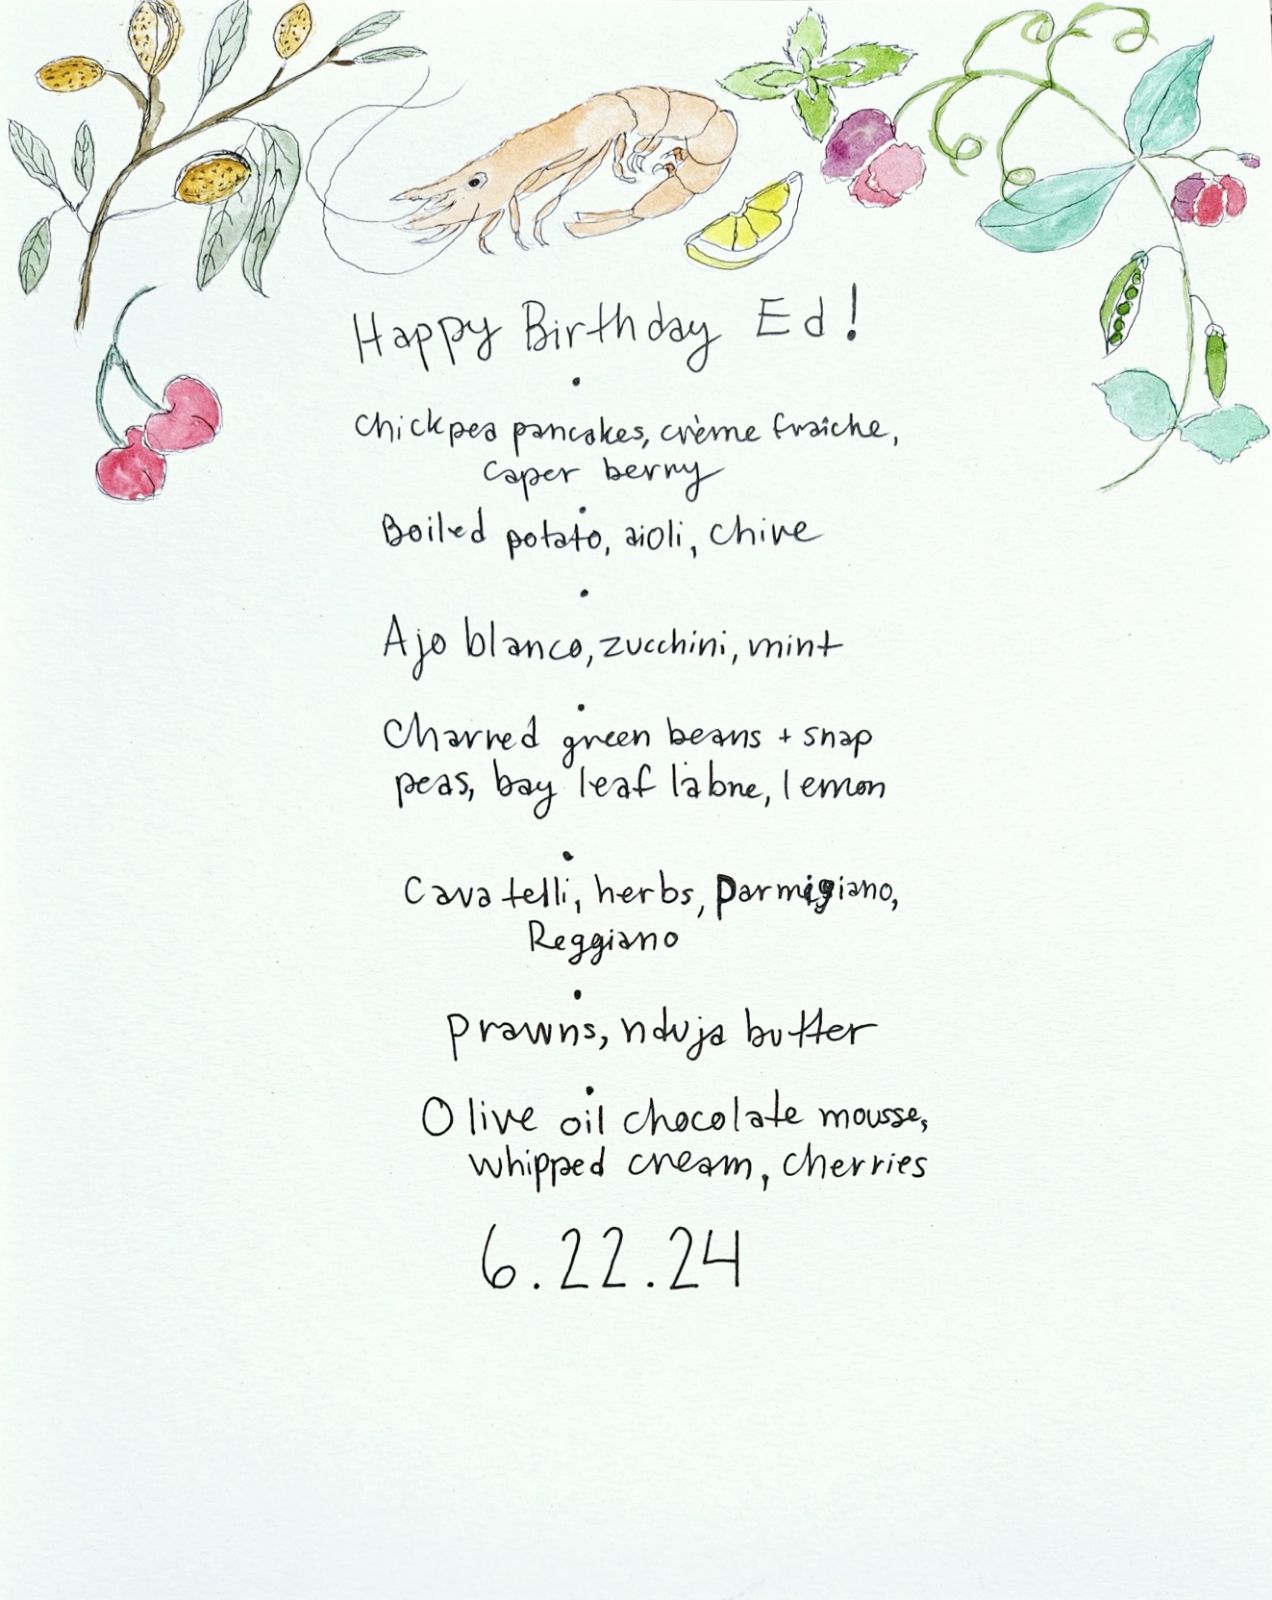 Happy Birthday Ed!
Chickpea pancakes, crème fraîche,
caper berry
Boiled potato, aioli, chive
Ajo blanco, zucchini, mint
Charred green beans + snap
peas, bay leaf labne, lemon
Cavatelli, herbs, Parmigiano,
Reggiano
Prawns, nduja butter
Olive oil chocolate mousse,
whipped cream, cherries
6.22.24